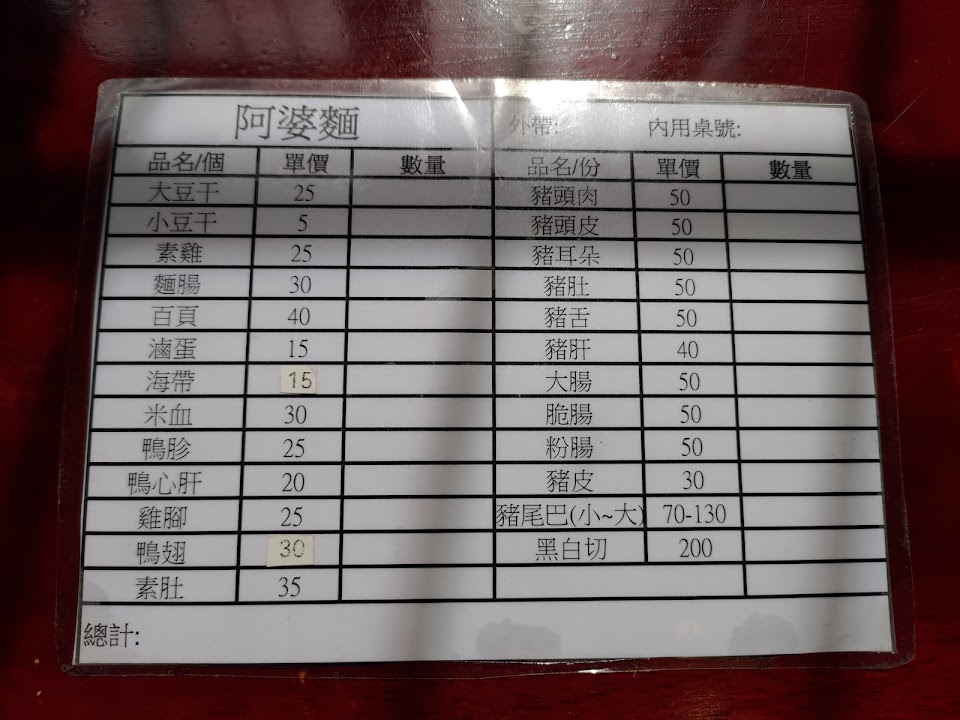 阿婆麵 外帶: 內用桌號:
品名/個 單價 數量 品名/份 單價 數量
大豆干 25 豬頭肉 50
小豆干 5 豬頭皮 50
素雞 25 豬耳朵 50
麵腸 30 豬肚 50
百頁 40 豬舌 50
滷蛋 15 豬肝 40
海帶 15 大腸 50
米血 30 脆腸 50
鴨胗 25 粉腸 50
鴨心肝 20 豬皮 30
雞腳 25 豬尾巴(小~大) 70-130
鴨翅 30 黑白切 200
素肚 35
總計: